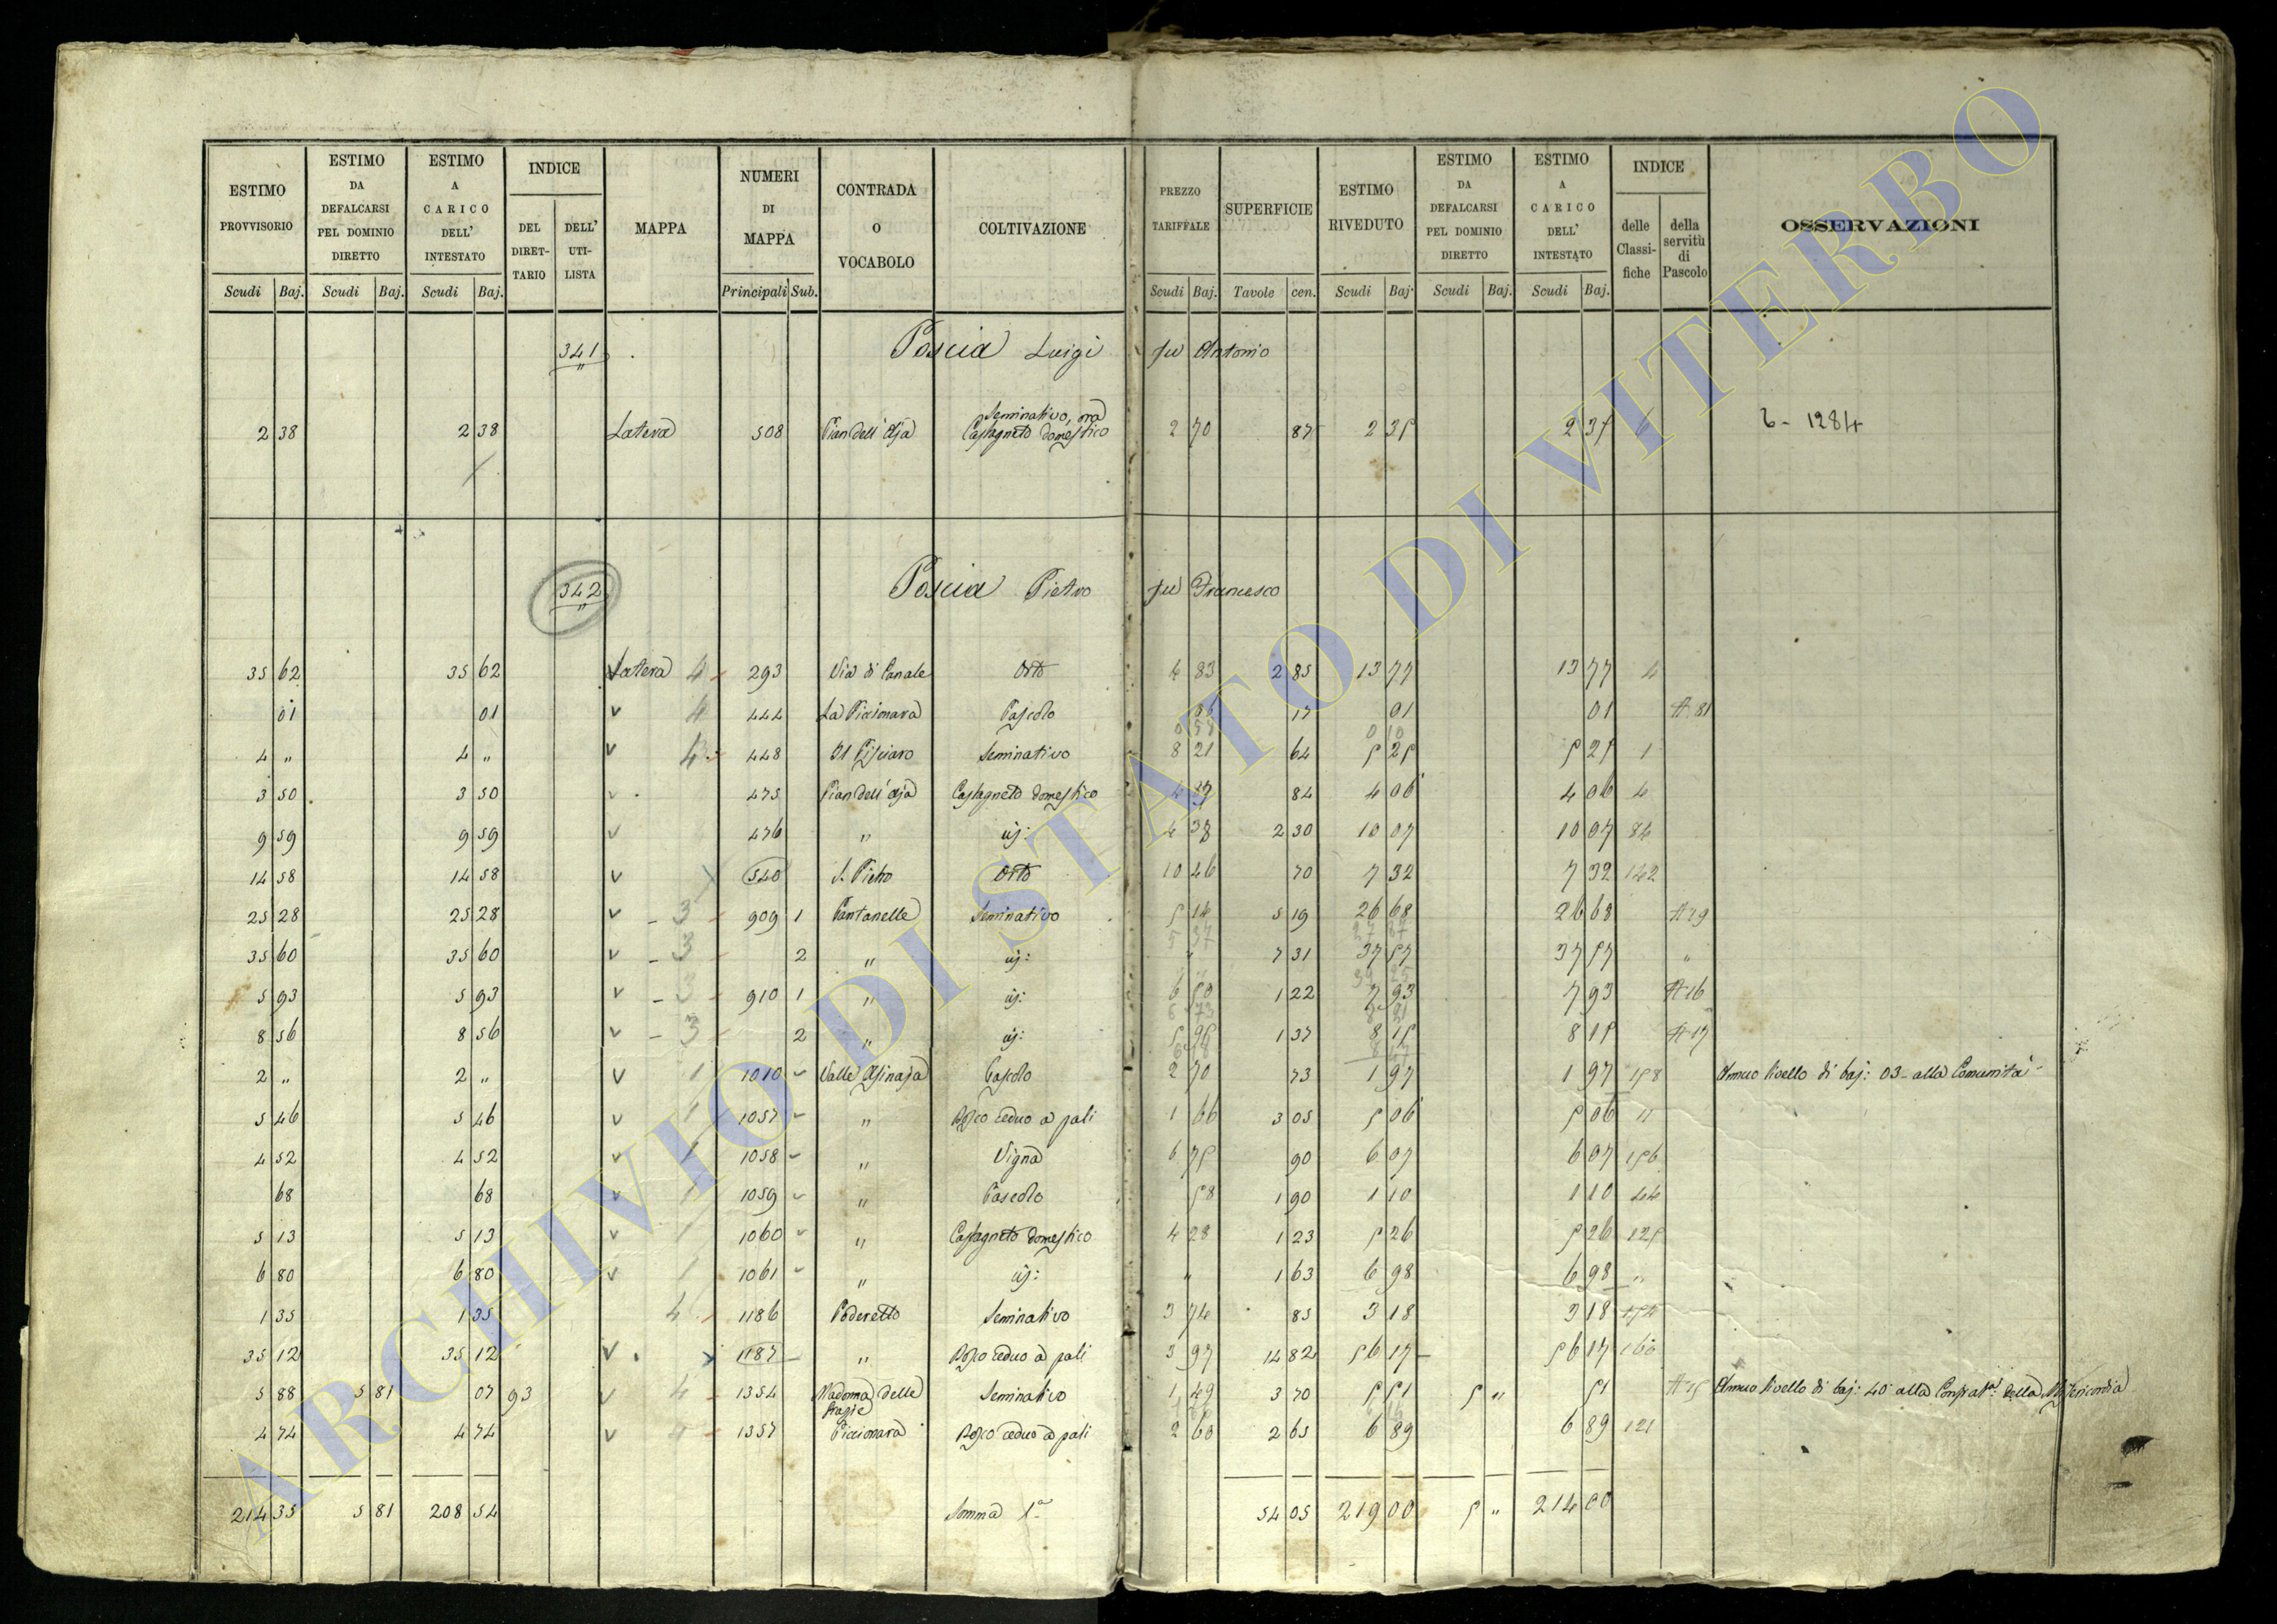 ESTIMO PROVVISORIO Scudi Baj. | ESTIMO DA DEFALCARSI PEL DOMINIO DIRETTO Scudi Baj. | ESTIMO A CARICO DELL' INTESTATO Scudi Baj. | INDICE DEL DIRET-TARIO | DELL' UTI-LISTA | MAPPA | NUMERI DI MAPPA Principali Sub. | CONTRADA O VOCABOLO | COLTIVAZIONE | PREZZO TARIFFALE Scudi Baj. | SUPERFICIE Tavole cen. | ESTIMO RIVEDUTO Scudi Baj. | ESTIMO DA DEFALCARSI PEL DOMINIO DIRETTO Scudi Baj. | ESTIMO A CARICO DELL' INTESTATO Scudi Baj. | INDICE delle Classi-fiche | della servitù di Pascolo | OSSERVAZIONI
341 Poscia Luigi fu Antonio
2 38 2 38 Latera 508 Pian dell'Aja Seminativo, ora Castagneto domestico 2 70 87 2 35 2 35 6 6 - 1284
342 Poscia Pietro fu Francesco
35 62 35 62 Latera 4 293 Via di Canale Orto 4 83 2 85 13 77 13 77 4
01 01 4 444 La Piccionara Pascolo 06 17 01 01 A 81
4 " 4 " 4 448 Il Pisciaro Seminativo 8 21 64 5 25 5 25 1
3 50 3 50 475 Pian dell'Aja Castagneto domestico 4 84 4 06 4 06 4
9 59 9 59 476 " id: 4 38 2 30 10 07 10 07 84
14 58 14 58 540 S. Pietro Orto 10 46 70 7 32 7 32 142
25 28 25 28 3 909 1 Pantanelle Seminativo 5 14 5 19 26 68 26 68 A 29
5 37 27 87
35 60 35 60 3 2 " id: " 7 31 37 57 37 57 "
5 93 5 93 3 910 1 " id: 6 50 1 22 7 93 7 93 A 16
8 56 8 56 3 2 " id: 5 95 1 37 8 15 8 15 A 17
2 " 2 " 1 1010 Valle Asinaja Pascolo 2 70 73 1 97 1 97 158 Annuo livello di baj: 03 - alla Comunità -
5 46 5 46 1 1057 " Bosco ceduo a pali 1 66 3 05 5 06 5 06 11
4 52 4 52 1 1058 " Vigna 6 75 90 6 07 6 07 156
68 68 1 1059 " Pascolo 58 1 90 1 10 1 10 44
5 13 5 13 1 1060 " Castagneto domestico 4 28 1 23 5 26 5 26 125
6 80 6 80 1 1061 " id: " 1 63 6 98 6 98 "
1 35 1 35 4 1186 Poderetto Seminativo 3 74 85 3 18 3 18 154
35 12 35 12 1187 " Bosco ceduo a pali 3 97 14 82 56 17 56 17 160
5 88 5 81 07 93 4 1354 Madonna delle Grazie Seminativo 1 49 3 70 5 51 5 " 51 A 15 Annuo livello di baj: 40 alla Confrat.ta della Misericordia
4 74 4 74 4 1357 Piccionara Bosco ceduo a pali 2 60 2 65 6 89 6 89 121
214 35 5 81 208 54 Somma 1a 54 05 219 00 5 " 214 00
ARCHIVIO DI STATO DI VITERBO